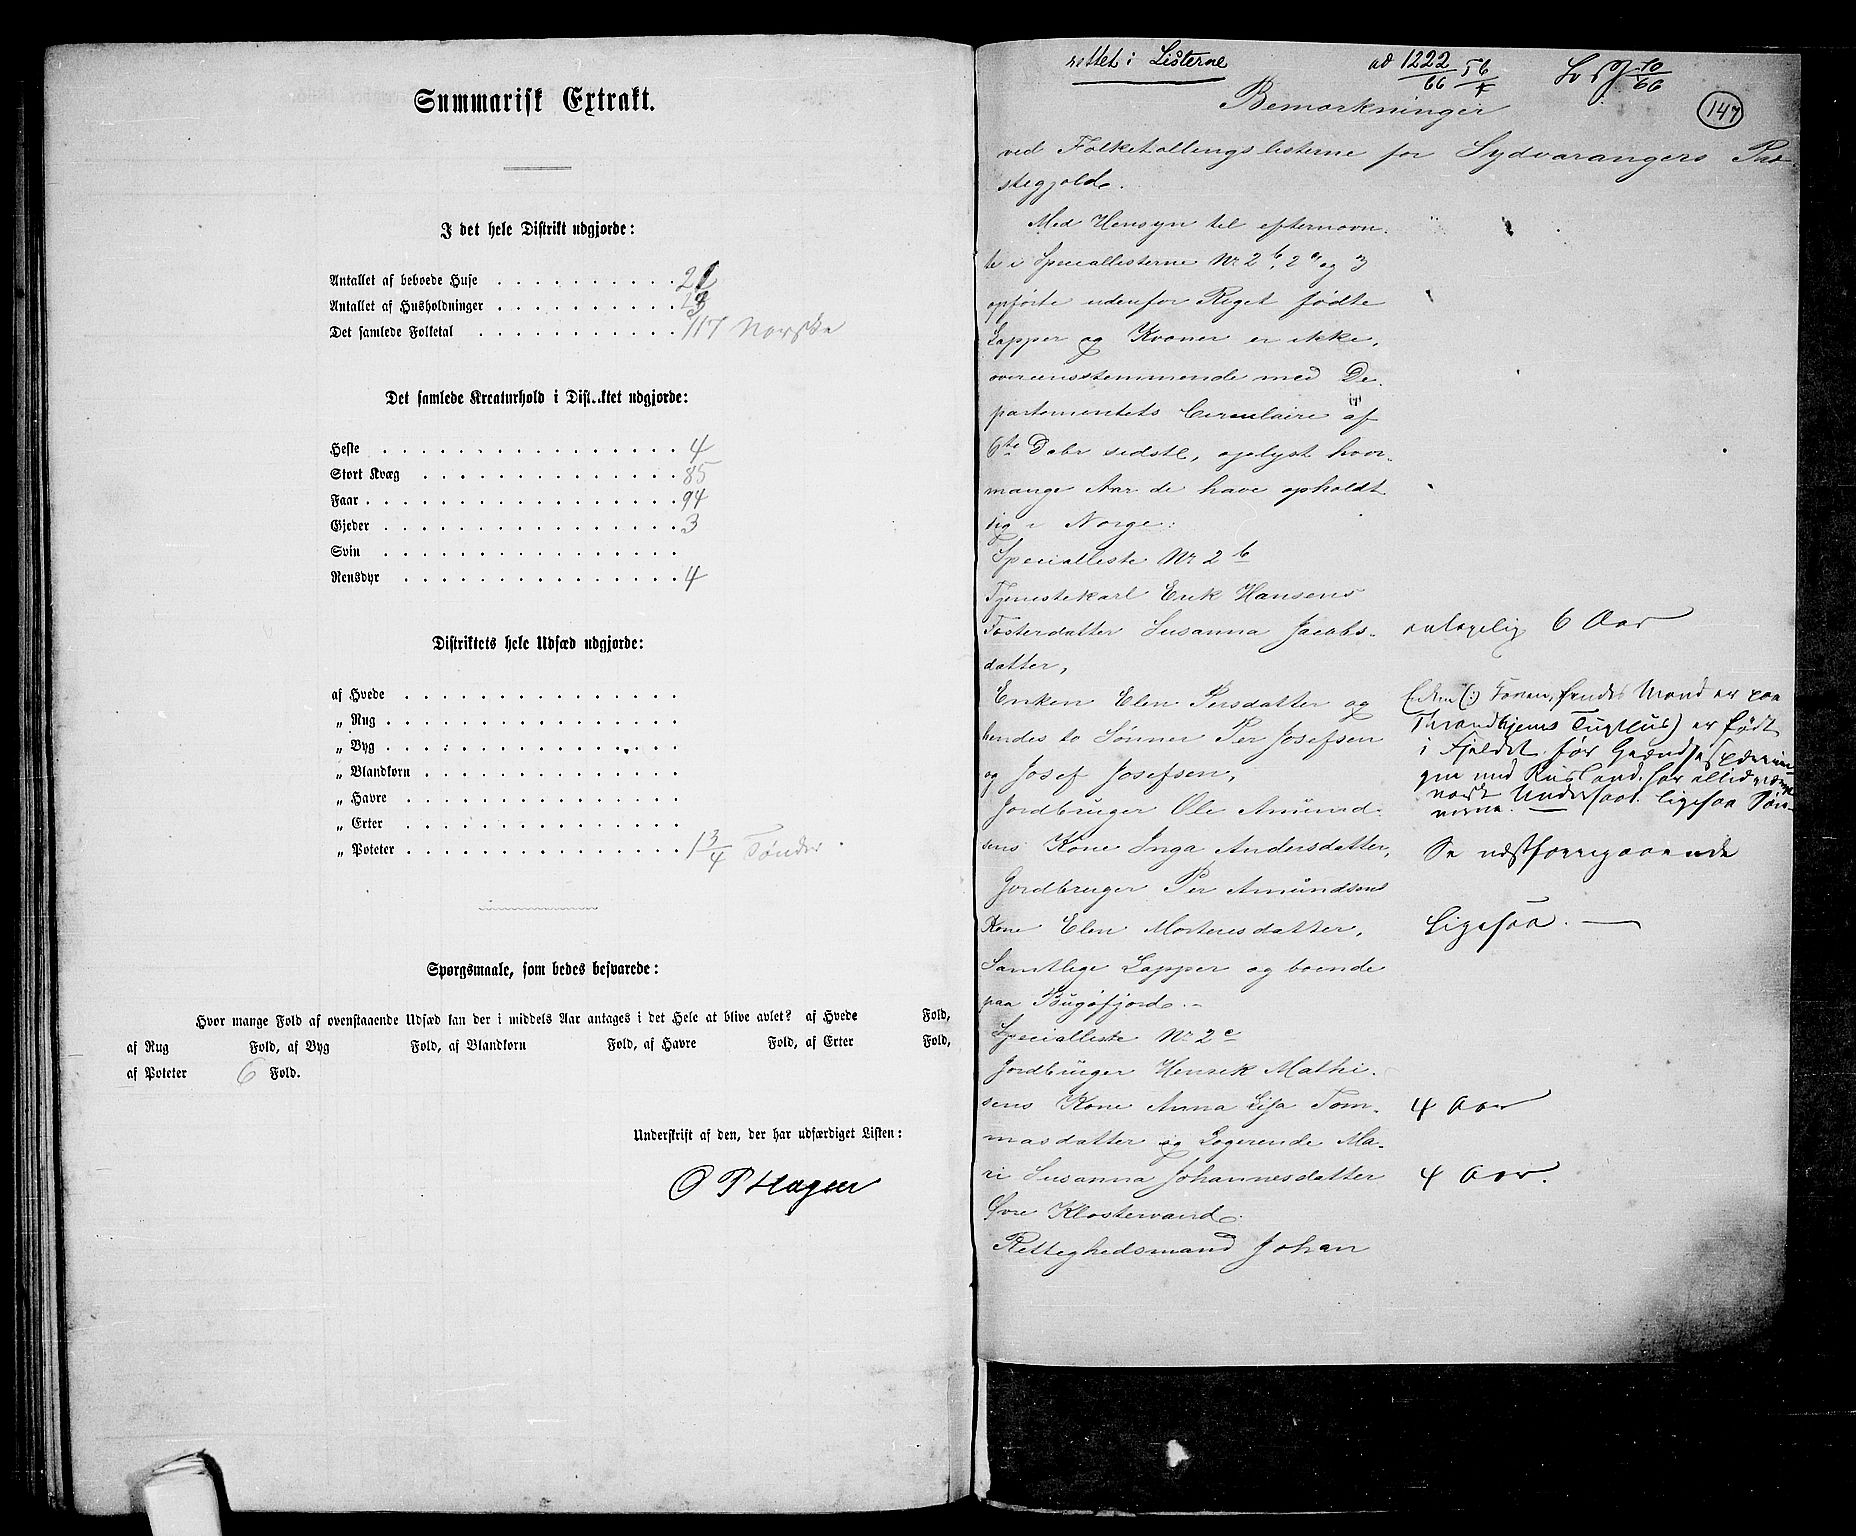 Summarisk Extrakt.
I det hele Distrikt udgjorde:
Antallet af beboede Huse . . . . . . . . . . 21
Antallet af Husholdninger . . . . . . . . . . 23
Det samlede Folketal . . . . . . . . . . . 117 Norske
Det samlede Kreaturhold i Distriktet udgjorde:
Heste . . . . . . . . . . . . . . . . 4
Stort Kvæg . . . . . . . . . . . . . . 85
Faar . . . . . . . . . . . . . . . . . 94
Gjeder . . . . . . . . . . . . . . . . 3
Svin . . . . . . . . . . . . . . . .
Rensdyr . . . . . . . . . . . . . . . 4
Distriktets hele Udsæd udgjorde:
af Hvede . . . . . . . . . . . . . . .
„ Rug . . . . . . . . . . . . . . . .
„ Byg . . . . . . . . . . . . . . . .
„ Blandkorn . . . . . . . . . . . . . .
„ Havre . . . . . . . . . . . . . . .
„ Erter . . . . . . . . . . . . . . .
„ Poteter . . . . . . . . . . . . . . . 1 3/4 Tønder.
Spørgsmaale, som bedes besvarede:
Hvor mange Fold af ovenstaaende Udsæd kan der i middels Aar antages i det Hele at blive avlet? af Hvede Fold,
af Rug Fold, af Byg Fold, af Blandkorn Fold, af Havre Fold, af Erter Fold,
af Poteter 6 Fold.
Underskrift af den, der har udfærdiget Listen:
O P Hagen
rettet i Listerne ad 1222/66 10/66
Bemærkninger
147
ved Folketællingslisterne for Sydvarangers Præ-
stegjeld.
Med Hensyn til efternævn-
te i Speciallisterne Nr 2 b, 2 c og 3
opførte udenfor Riget fødte
Lapper og Kvæner er ikke,
overensstemmende med De-
partementets Circulaire af
6te Debr sidstl, oplyst hvor-
mange Aar de have opholdt
sig i Norge:
Specialliste Nr 2 b
Tjenestekarl Erik Hansens
Fosterdatter Susanna Jacobs- antagelig 6 Aar
datter,
Enken Elen Persdatter og
hendes to Sønner Per Josefsen
og Josef Josefsen,
Enken (: Konen, hendes Mand er paa
Throndhjems Tugthus) er født
i Fjeldet før Grændse
med Rusland, har altid været
norsk Undersaat. Ligesaa Søn-
nerne —
Jordbruger Ole Amund-
sens Kone Inga Andersdatter, Se næstforegaaende
Jordbruger Per Amundsens
Kone Elen Mortensdatter, Ligesaa. —
Samtlige Lapper og boende
paa Bugøfjord. —
Specialliste Nr 2 c
Jordbruger Henrik Mathi-
sens Kone Anna Lisa Tom- 4 Aar
masdatter og Logerende Ma-
ri Susanna Johannesdatter 4 Aar.
Øvre Klostervand.
Rettighedsmand Johan